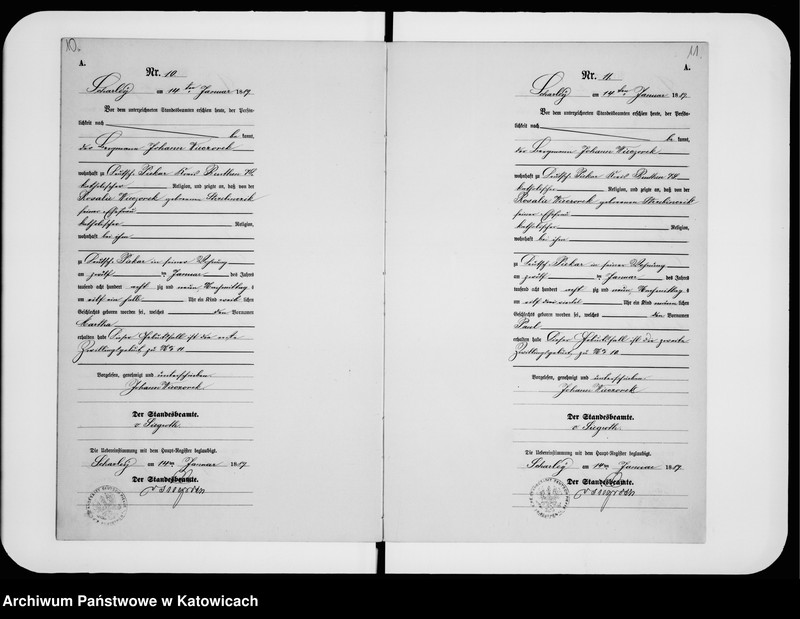 10.
A.
Nr. 10
Scharley am 14ten Januar 1889.
Vor dem unterzeichneten Standesbeamten erschien heute, der Persön-
lichkeit nach
be kannt,
der Bergmann Johann Wieczorek
wohnhaft zu Deutsch Piekar Kreis Beuthen
katholischer Religion, und zeigte an, daß von der
Rosalie Wieczorek geborenen
seiner Ehefrau
katholischer Religion,
wohnhaft bei ihm
zu Deutsch Piekar in seiner Wohnung
am zwölften Januar des Jahres
tausend acht hundert acht zig und neun Nachmittag s
um elf ein halb Uhr ein Kind weib lichen
Geschlechts geboren worden sei, welches den Vornamen
Martha
erhalten habe Dieser Geburtsfall ist die erste
Zwillingsgeburt zu No 11
Vorgelesen, genehmigt und unterschrieben
Johann Wieczorek
Der Standesbeamte.
v Siegroth
Die Uebereinstimmung mit dem Haupt-Register beglaubigt.
Scharley am 14ten Januar 1889
Der Standesbeamte.
v Siegroth
11.
A.
Nr. 11
Scharley am 14ten Januar 1889.
Vor dem unterzeichneten Standesbeamten erschien heute, der Persön-
lichkeit nach
be kannt,
der Bergmann Johann Wieczorek
wohnhaft zu Deutsch Piekar Kreis Beuthen
katholischer Religion, und zeigte an, daß von der
Rosalie Wieczorek geborenen
seiner Ehefrau
katholischer Religion,
wohnhaft bei ihm
zu Deutsch Piekar in seiner Wohnung
am zwölften Januar des Jahres
tausend acht hundert acht zig und neun Nachmittag s
um elf drei viertel Uhr ein Kind männ lichen
Geschlechts geboren worden sei, welches den Vornamen
Paul
erhalten habe Dieser Geburtsfall ist die zweite
Zwillingsgeburt zu No 10
Vorgelesen, genehmigt und unterschrieben
Johann Wieczorek
Der Standesbeamte.
v Siegroth
Die Uebereinstimmung mit dem Haupt-Register beglaubigt.
Scharley am 14ten Januar 1889.
Der Standesbeamte.
v Siegroth
Archiwum Państwowe w Katowicach